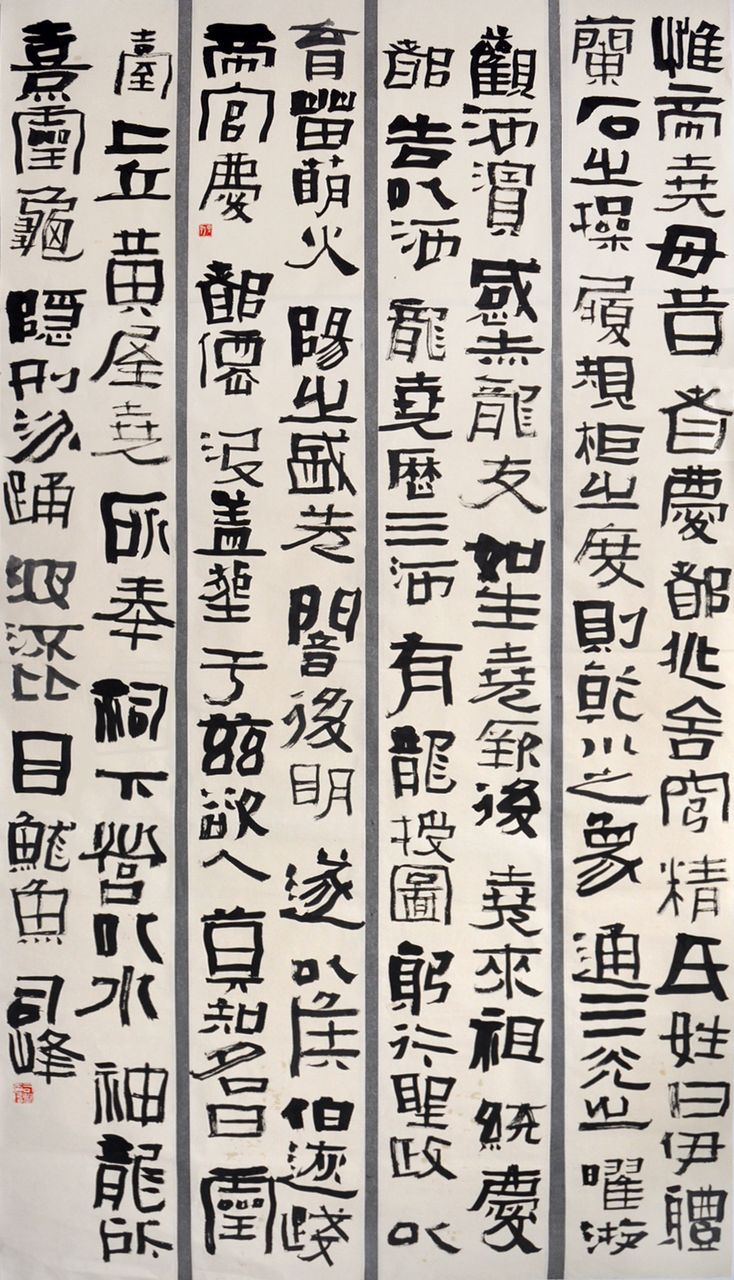 惟帝堯母昔者慶都兆舍穹精氏姓曰伊體
蘭石之操履規柜之度則乾川之象通三光之曜游
觀河濱感赤龍友如生堯厥後堯來祖統慶
都告以河龍堯歷三河有龍授圖躬行聖政以
育苗萌火陽之盛先闇後明遂以侯伯恢踐
帝宮慶都僊沒蓋葬于茲欲人莫知名曰靈
臺上立黃屋堯所奉祠下營以水神龍所
熹靈龜隱刑沕踊波比目鮪魚司峰